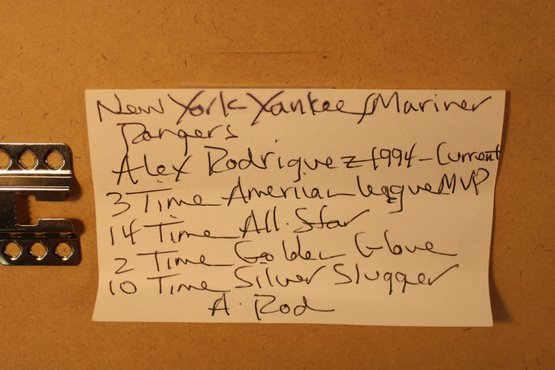 New York Yankees/Mariner
Rangers
Alex Rodriguez-1994-Current
3 Time American League MVP
14 Time All-Star
2 Time Golden Glove
10 Time Silver Slugger
A-Rod